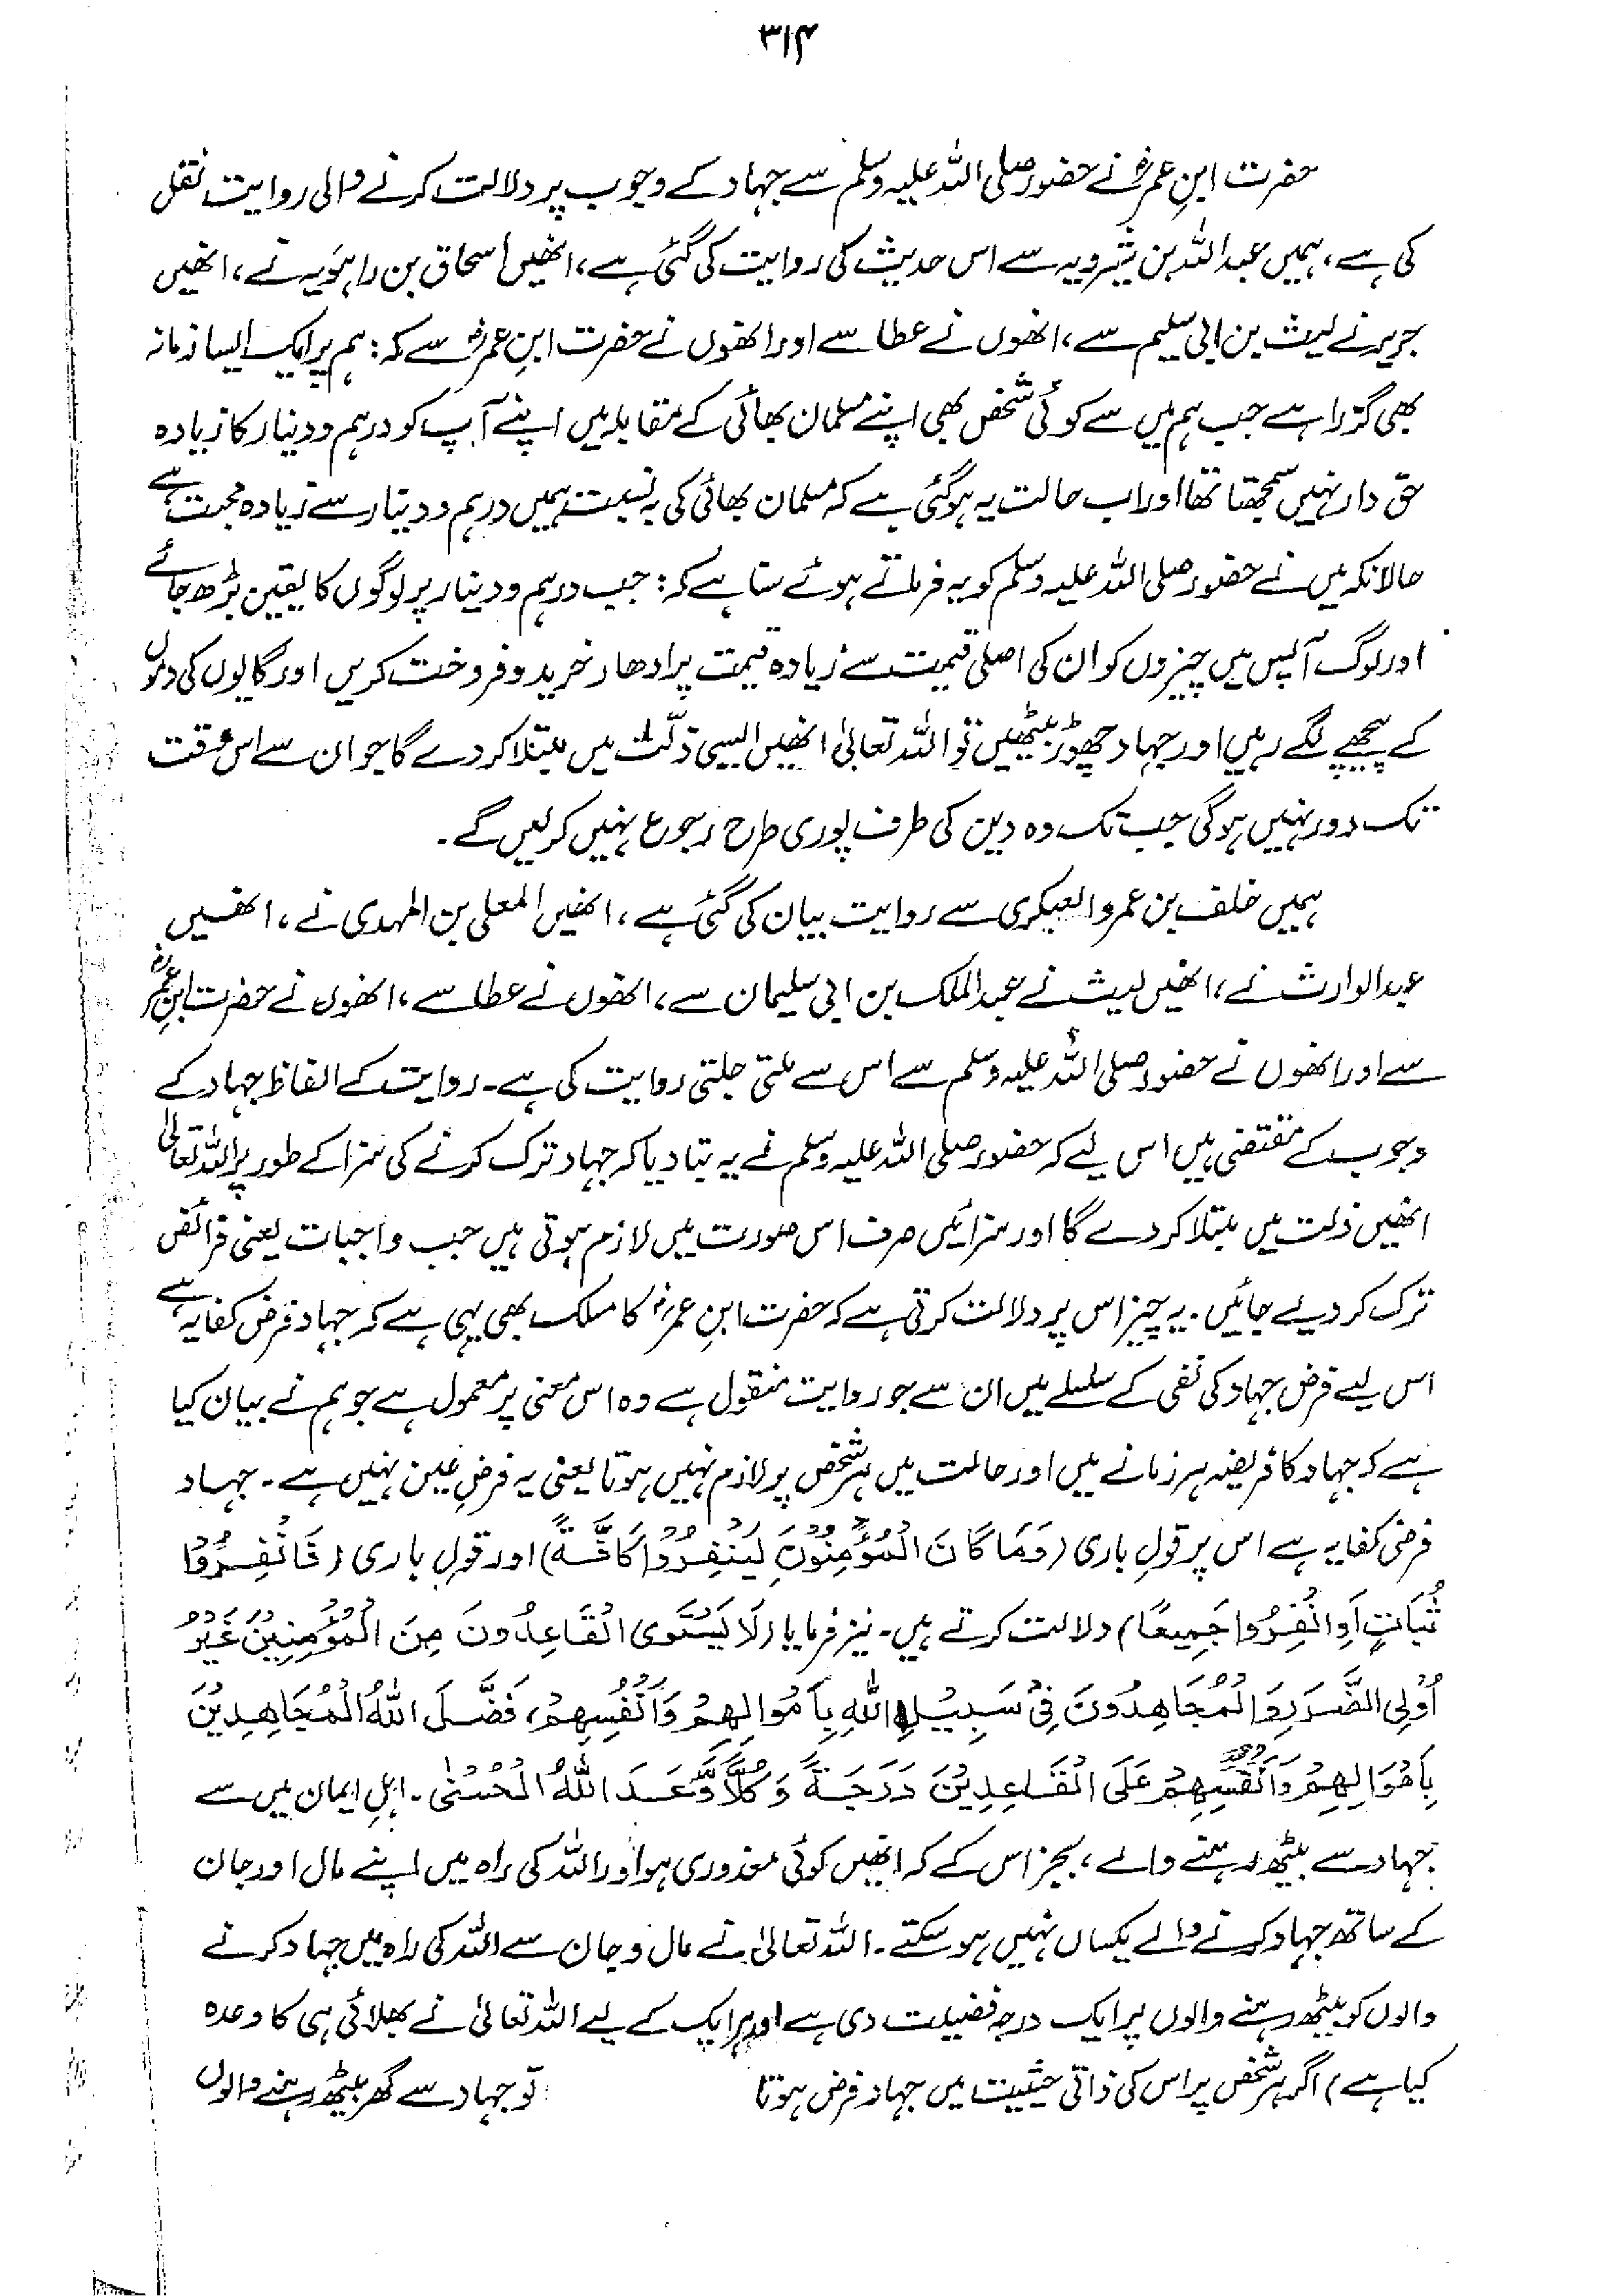 ۳۱۴
حضرت ابنِ عمرؓ نے حضور صلی اللہ علیہ وسلم سے جہاد کے وجوب پر دلالت کرنے والی روایت نقل
کی ہے، ہمیں عبداللہ بن شیرویہ سے اس حدیث کی روایت کی گئی ہے، انھیں اسحاق بن راہویہ نے، انھیں
جریر نے لیث بن ابی سلیم سے، انھوں نے عطا سے اور انھوں نے حضرت ابنِ عمرؓ سے کہ: ہم پر ایک ایسا زمانہ
بھی گزرا ہے جب ہم میں سے کوئی شخص بھی اپنے مسلمان بھائی کے مقابلہ میں اپنے آپ کو درہم و دینار کا زیادہ
حق دار نہیں سمجھتا تھا اور اب حالت یہ ہوگئی ہے کہ مسلمان بھائی کی بہ نسبت ہمیں درہم و دینار سے زیادہ محبت ہے
حالانکہ میں نے حضور صلی اللہ علیہ وسلم کو یہ فرماتے ہوئے سنا ہے کہ: جب درہم و دینار پر لوگوں کا یقین بڑھ جائے
اور لوگ آپس میں چیزوں کو ان کی اصلی قیمت سے زیادہ قیمت پر ادھار خرید و فروخت کریں اور گایوں کی دموں
کے پیچھے لگے رہیں اور جہاد چھوڑ بیٹھیں تو اللہ تعالیٰ انھیں ایسی ذلّت میں مبتلا کر دے گا جو ان سے اس وقت
تک دور نہیں ہوگی جب تک وہ دین کی طرف پوری طرح رجوع نہیں کر لیں گے۔
ہمیں خلف بن عمرو العبکری سے روایت بیان کی گئی ہے، انھیں المعلی بن المہدی نے، انھیں
عبدالوارث نے، انھیں لیث نے عبدالملک بن ابی سلیمان سے، انھوں نے عطا سے، انھوں نے حضرت ابنِ عمرؓ
سے اور انھوں نے حضور صلی اللہ علیہ وسلم سے اس سے ملتی جلتی روایت کی ہے۔ روایت کے الفاظ جہاد کے
وجوب کے مقتضی ہیں اس لیے کہ حضور صلی اللہ علیہ وسلم نے یہ بتا دیا کہ جہاد ترک کرنے کی سزا کے طور پر اللہ تعالیٰ
انھیں ذلت میں مبتلا کر دے گا اور سزائیں صرف اس صورت میں لازم ہوتی ہیں جب واجبات یعنی فرائض
ترک کر دیے جائیں۔ یہ چیز اس پر دلالت کرتی ہے کہ حضرت ابنِ عمرؓ کا مسلک بھی یہی ہے کہ جہاد فرض کفایہ ہے
اس لیے فرض جہاد کی نفی کے سلسلے میں ان سے جو روایت منقول ہے وہ اس معنی پر محمول ہے جو ہم نے بیان کیا
ہے کہ جہاد کا فریضہ ہر زمانے میں اور حالت میں ہر شخص پر لازم نہیں ہوتا یعنی یہ فرضِ عین نہیں ہے۔ جہاد
فرض کفایہ ہے اس پر قولِ باری (وَمَا كَانَ الْمُؤْمِنُوْنَ لِيَنْفِرُوْا كَافَّةً) اور قولِ باری (فَانْفِرُوْا
ثُبَاتٍ اَوِ انْفِرُوا جَمِيعًا) دلالت کرتے ہیں۔ نیز فرمایا (لَا يَسْتَوِى الْقَاعِدُونَ مِنَ الْمُؤْمِنِيْنَ غَيْرُ
اُولِى الضَّرَرِ وَالْمُجَاهِدُونَ فِىْ سَبِيْلِ اللّٰهِ بِاَمْوَالِهِمْ وَاَنْفُسِهِمْ، فَضَّلَ اللّٰهُ الْمُجَاهِدِيْنَ
بِاَمْوَالِهِمْ وَاَنْفُسِهِمْ عَلَى الْقَاعِدِيْنَ دَرَجَةً وَكُلًّا وَّعَدَ اللّٰهُ الْحُسْنٰى۔ اہلِ ایمان میں سے
جہاد سے بیٹھ رہنے والے، بجز اس کے کہ انھیں کوئی معذوری ہو اور اللہ کی راہ میں اپنے مال اور جان
کے ساتھ جہاد کرنے والے یکساں نہیں ہو سکتے۔ اللہ تعالیٰ نے مال و جان سے اللہ کی راہ میں جہاد کرنے
والوں کو بیٹھ رہنے والوں پر ایک درجہ فضیلت دی ہے اور ہر ایک کے لیے اللہ تعالیٰ نے بھلائی ہی کا وعدہ
کیا ہے) اگر ہر شخص پر اس کی ذاتی حیثیت میں جہاد فرض ہوتا تو جہاد سے گھر بیٹھ رہنے والوں